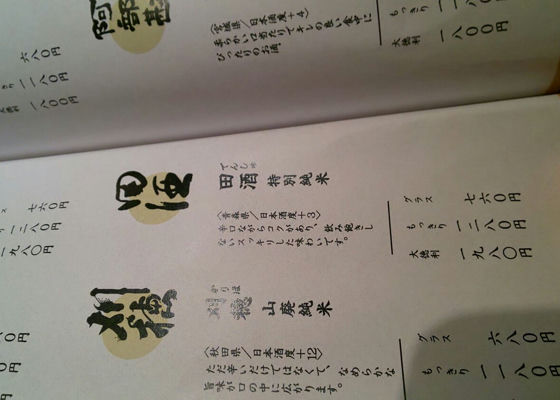 阿部勘
〈宮城県／日本酒度＋4〉
柔らかい口当たりでキレの良い食中に
ぴったりのお酒。
もっきり 一一八〇円
大徳利 一八〇〇円
六八〇円
一一八〇円
一八〇〇円
田酒
てんしゅ
田酒 特別純米
〈青森県／日本酒度＋3〉
辛口ながらコクがあり、飲み飽きし
ないスッキリした味わいです。
グラス 七六〇円
もっきり 一二八〇円
大徳利 一九八〇円
七六〇円
一二八〇円
一九八〇円
刈穂
かりほ
刈穂 山廃純米
〈秋田県／日本酒度＋12〉
ただ辛いだけではなくて、なめらかな
旨味が口の中に広がります。
グラス 六八〇円
もっきり 一一八〇円
〇円
〇円
円